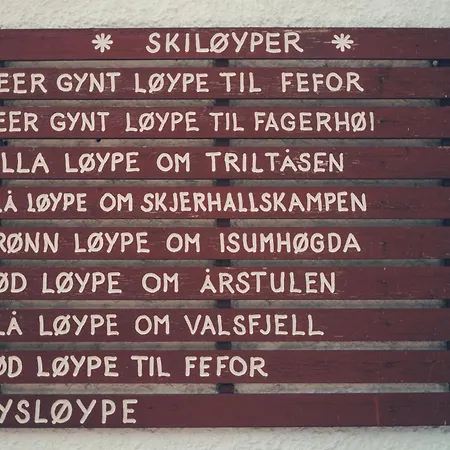 * SKILØYPER *
EER GYNT LØYPE TIL FEFOR
EER GYNT LØYPE TIL FAGERHØI
LLA LØYPE OM TRILTÅSEN
LÅ LØYPE OM SKJERHALLSKAMPEN
RØNN LØYPE OM ISUMHØGDA
ØD LØYPE OM ÅRSTULEN
LÅ LØYPE OM VALSFJELL
ØD LØYPE TIL FEFOR
YSLØYPE